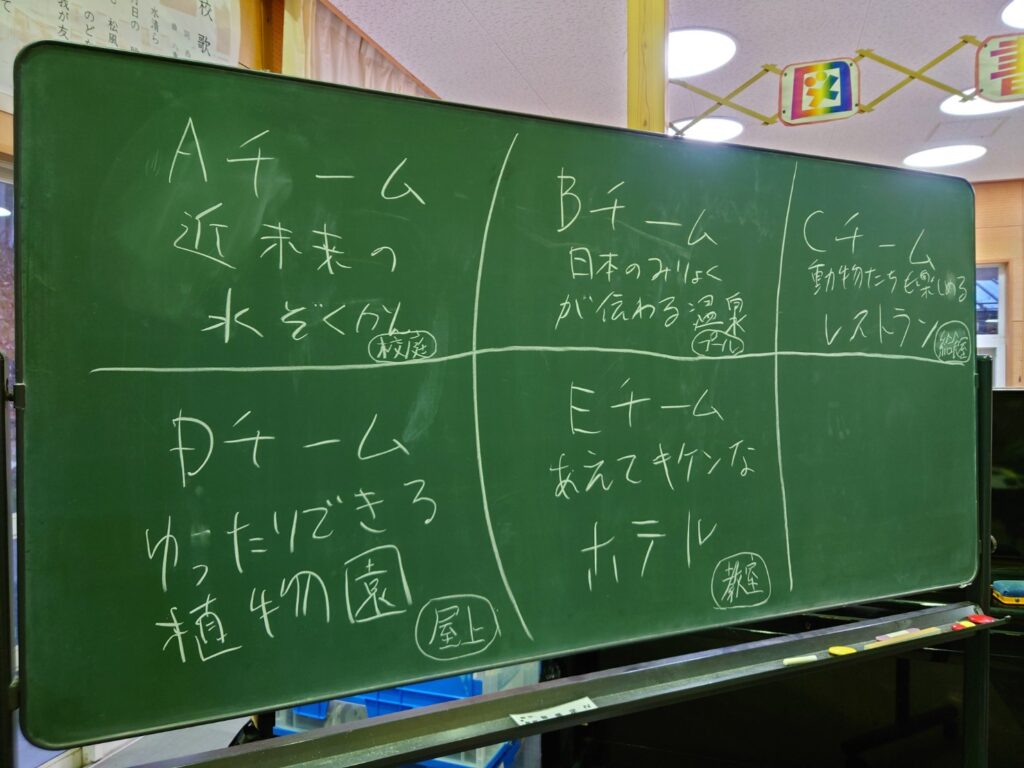 校歌
Aチーム
近未来の
水ぞくかん
校庭
Bチーム
日本のみりょく
が伝わる温泉
プール
Cチーム
動物たちも楽しめる
レストラン
Dチーム
ゆったりできる
植物園
屋上
Eチーム
あえてキケンな
ホテル
教室
図書